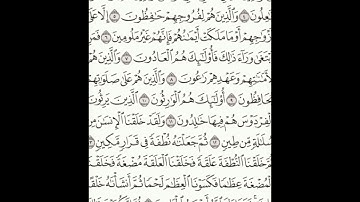 فَاعِلُونَ ٤ وَالَّذِينَ هُمْ لِفُرُوجِهِمْ حَافِظُونَ ٥ إِلَّا عَلَىٰ
أَزْوَاجِهِمْ أَوْ مَا مَلَكَتْ أَيْمَانُهُمْ فَإِنَّهُمْ غَيْرُ مَلُومِينَ ٦ فَمَنِ
ابْتَغَىٰ وَرَاءَ ذَٰلِكَ فَأُولَٰئِكَ هُمُ الْعَادُونَ ٧ وَالَّذِينَ هُمْ
لِأَمَانَاتِهِمْ وَعَهْدِهِمْ رَاعُونَ ٨ وَالَّذِينَ هُمْ عَلَىٰ صَلَوَاتِهِمْ
يُحَافِظُونَ ٩ أُولَٰئِكَ هُمُ الْوَارِثُونَ ١٠ الَّذِينَ يَرِثُونَ
الْفِرْدَوْسَ هُمْ فِيهَا خَالِدُونَ ١١ وَلَقَدْ خَلَقْنَا الْإِنسَانَ مِن
سُلَالَةٍ مِّن طِينٍ ١٢ ثُمَّ جَعَلْنَاهُ نُطْفَةً فِي قَرَارٍ مَّكِينٍ
ثُمَّ خَلَقْنَا النُّطْفَةَ عَلَقَةً فَخَلَقْنَا الْعَلَقَةَ مُضْغَةً فَخَلَقْنَا
الْمُضْغَةَ عِظَامًا فَكَسَوْنَا الْعِظَامَ لَحْمًا ثُمَّ أَنشَأْنَاهُ خَلْقًا